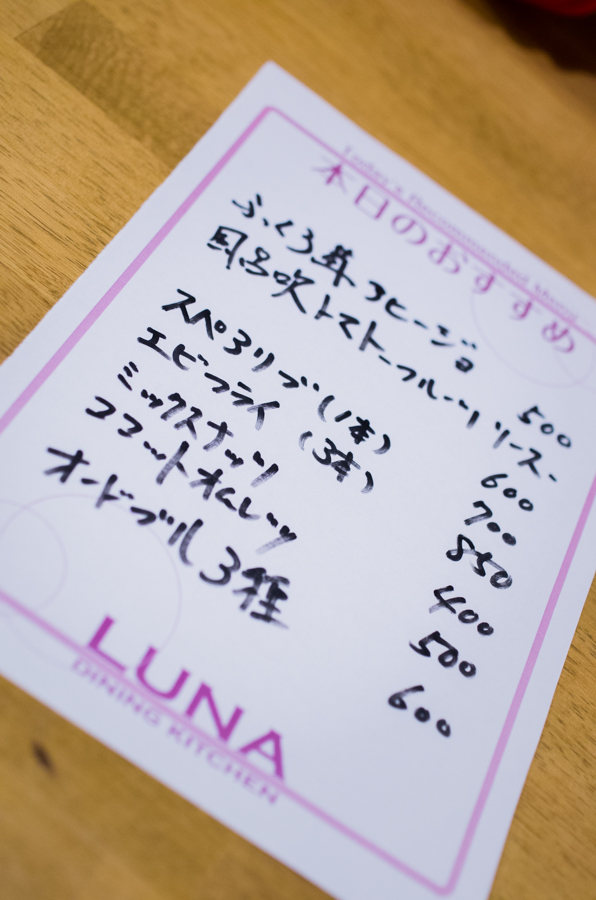 Today's Recommended Menu
本日のおすすめ
ふくろ茸アヒージョ 500
風呂吹トマト フルーツソース 600
スペアリブ(1本) 700
エビフライ (3本) 850
ミックスナッツ 400
ココットオムレツ 500
オードブル3種 600
LUNA
DINING KITCHEN